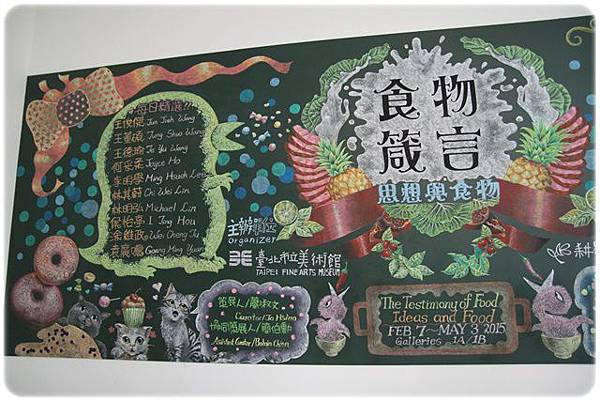 每日精選!!
王俊傑 Jun Jieh Wang
Jung Shuo Wang
王德瑜 Te Yu Wang
何采柔 Joyce Ho
李明學 Ming Hsueh Lee
林其蔚 Chi Wei Lin
林明弘 Michael Lin
侯怡亭 I Ting Hou
余政 Wei Cheng Tu
袁廣鳴 Goang Ming Yuan
食物
箴言
思想與食物
主辦單位
organizer
臺北市立美術館
TAIPEI FINE ARTS MUSEUM
策展人/蕭淑文
Curator/Jo Hsiao
協同策展人/簡伯勳
Assistant Curator/
The Testimony of Food
Ideas and Food
FEB 7~MAY 3 2015
Galleries 1A/1B
林